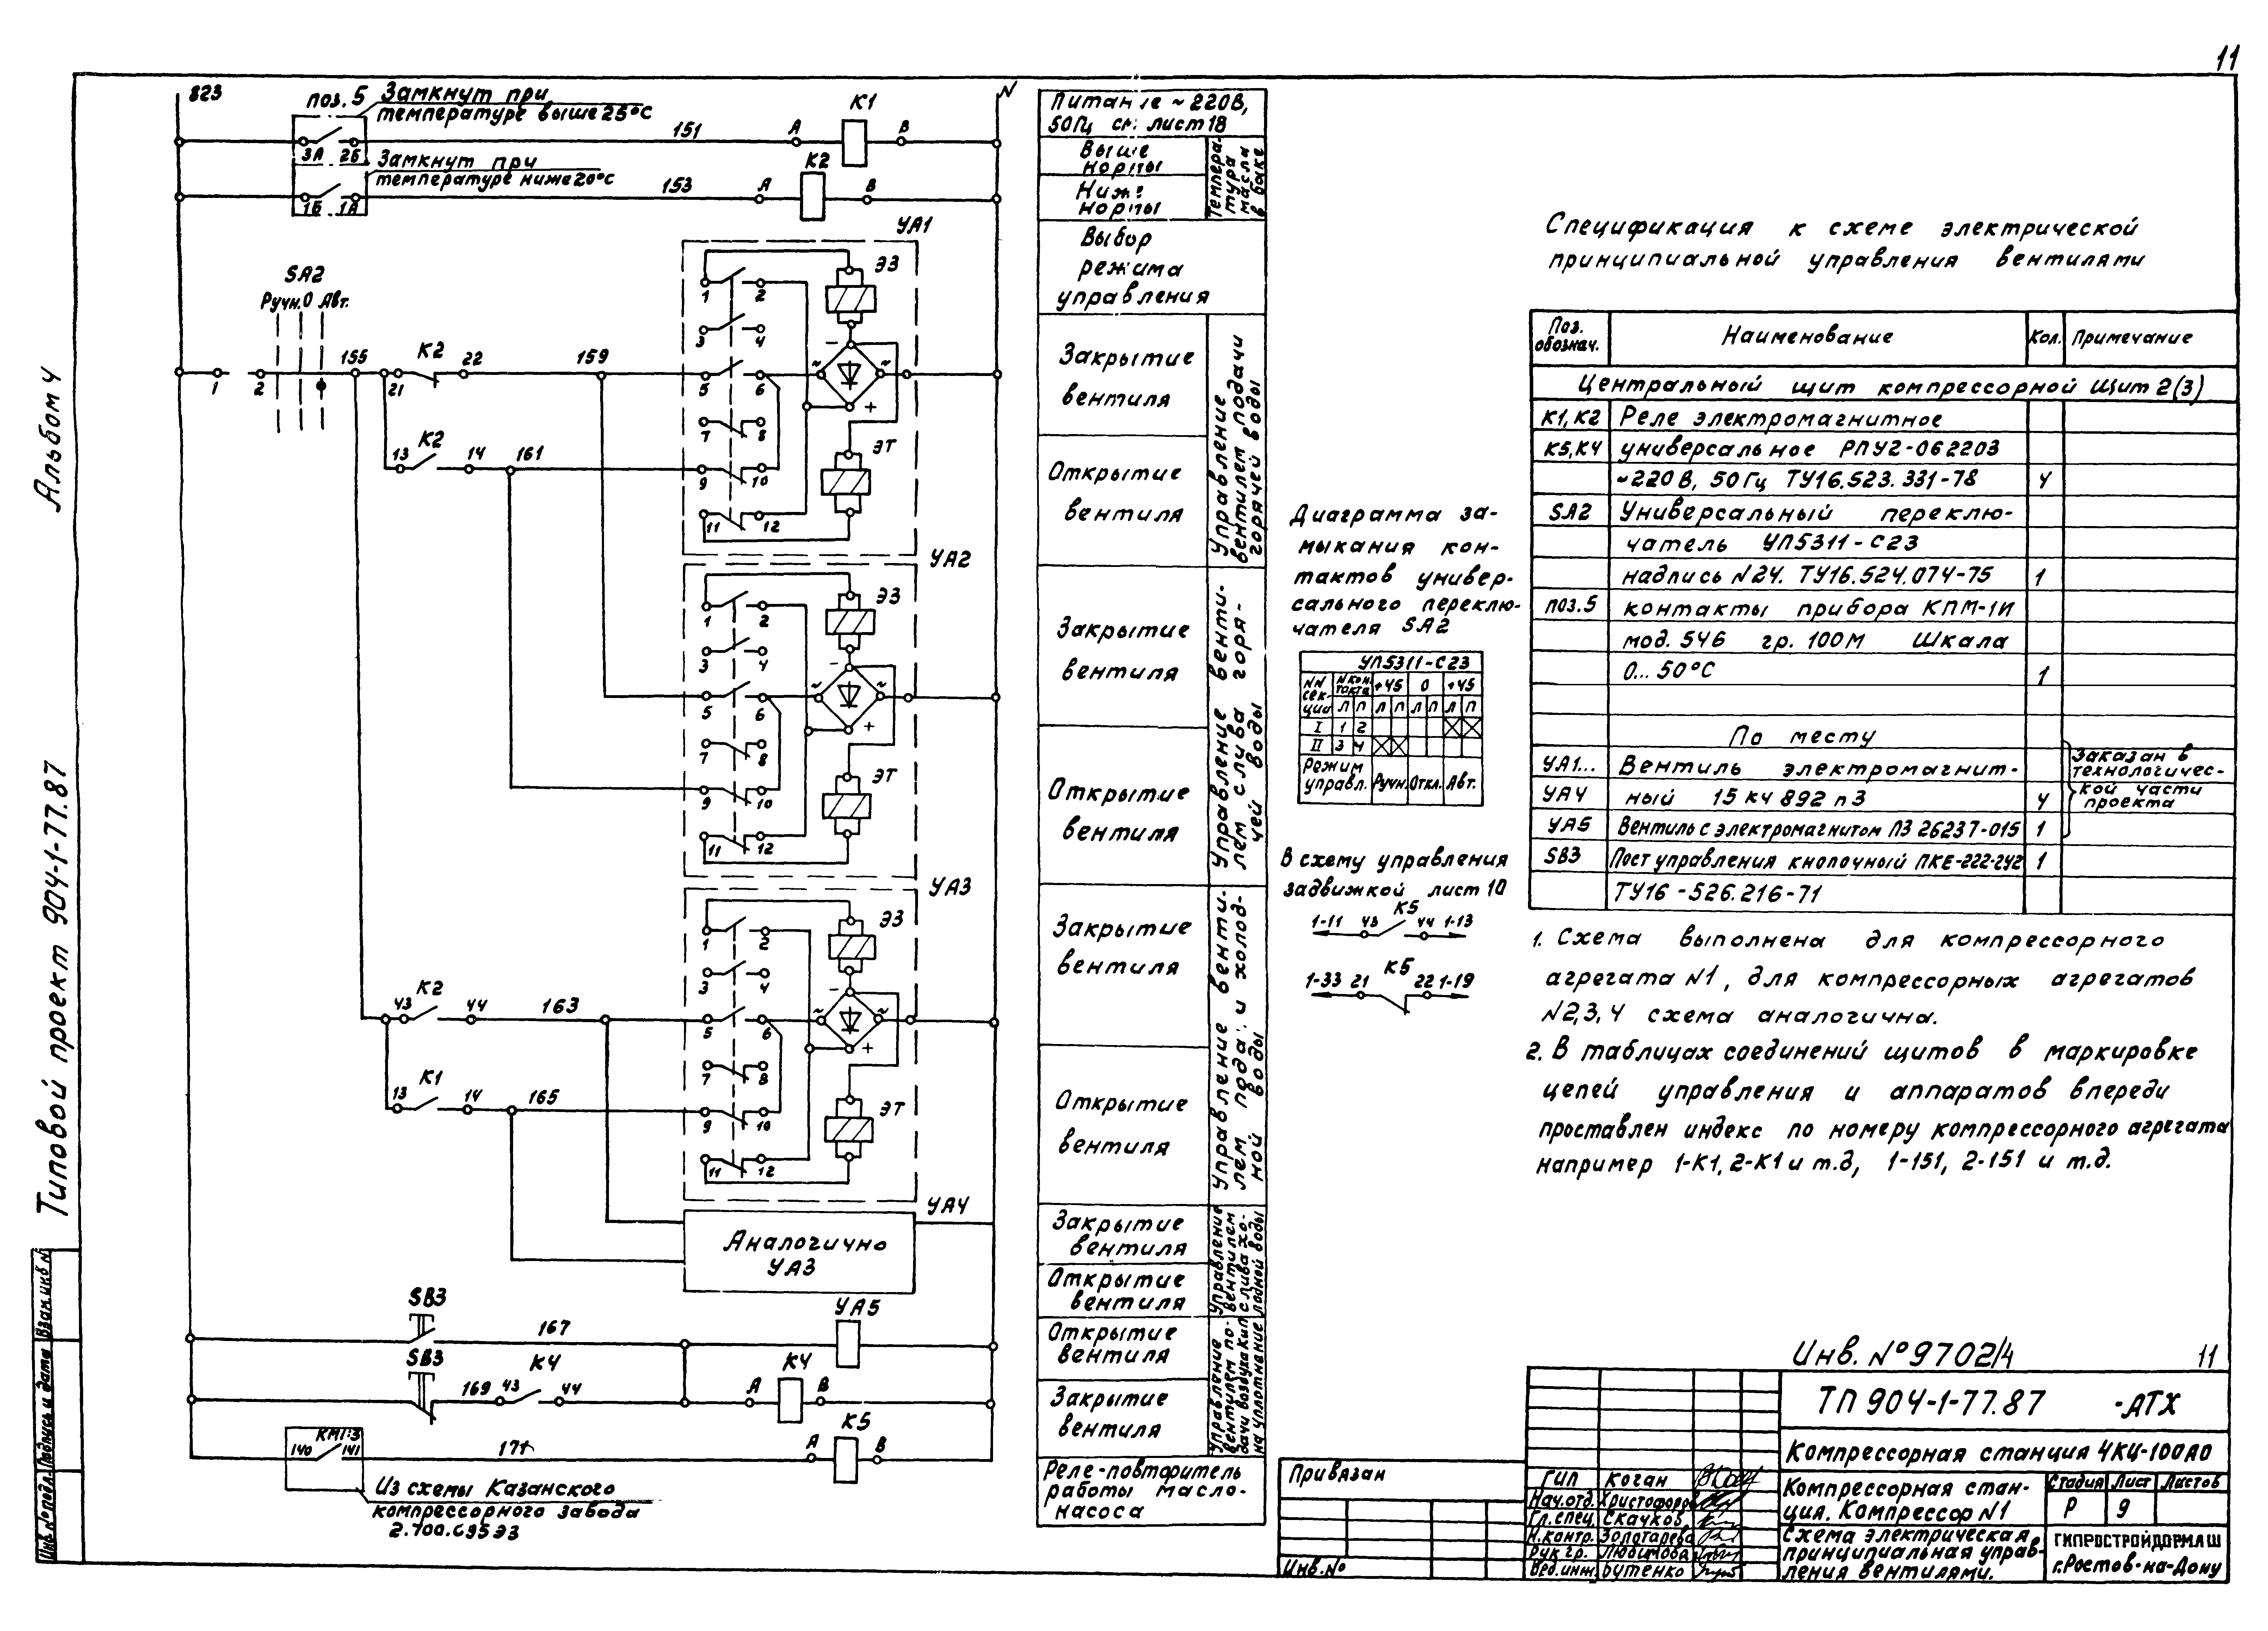 11
Альбом 4
Типовой проект 904-1-77.87
Инв.№подл. Подпись и дата Взам.инв.N
823
N
поз.5
Замкнут при
температуре выше 25°С
3А 2Б
151
А
К1
В
Замкнут при
температуре ниже 20°С
1Б 1А
153
А
К2
В
SA2
Ручн. 0 Авт.
1 2
155
К2
21 22
159
К2
13 14
161
УА1
1 2
3 4
5 6
7 8
9 10
11 12
ЭЗ
~ - ~ +
ЭТ
УА2
1 2
3 4
5 6
7 8
9 10
11 12
ЭЗ
~ - ~ +
ЭТ
УА3
1 2
3 4
5 6
7 8
9 10
11 12
ЭЗ
~ - ~ +
ЭТ
К2
43 44
163
К1
13 14
165
УА4
Аналогично
УА3
SB3
167
УА5
SB3
169
К4
43 44
А
К4
В
КМ1:3
140 141
171
А
К5
В
Из схемы Казанского
компрессорного завода
2.700.695ЭЗ
Питание ~220В,
50Гц см. лист 18
Выше
нормы
Ниже
нормы
Температура масла в баке
Выбор
режима
управления
Закрытие
вентиля
Открытие
вентиля
Управление вентилем подачи горячей воды
Закрытие
вентиля
Открытие
вентиля
Управление вентилем слива горячей воды
Закрытие
вентиля
Открытие
вентиля
Управление вентилем подачи холодной воды
Закрытие
вентиля
Открытие
вентиля
Управление вентилем слива холодной воды
Открытие
вентиля
Закрытие
вентиля
Управление вентилем подачи воздуха КИП на уплотнение
Реле-повторитель
работы масло-
насоса
Диаграмма за-
мыкания кон-
тактов универ-
сального переклю-
чателя SA2
УП5311-С23
NN секции N контакта +45 0 +45
Л П Л П Л П Л П
I 1 2
II 3 4
Режим
управл. Ручн. Откл. Авт.
В схему управления
задвижкой лист 10
К5
1-11 43 44 1-13
К5
1-33 21 22 1-19
Спецификация к схеме электрической
принципиальной управления вентилями
Поз. обознач. Наименование Кол. Примечание
Центральный щит компрессорной Щит 2(3)
К1,К2 Реле электромагнитное
К5,К4 универсальное РПУ2-062203
~220В, 50Гц ТУ16.523.331-78 4
SA2 Универсальный переклю-
чатель УП5311-С23
надпись N24. ТУ16.524.074-75 1
поз.5 контакты прибора КПМ-1И
мод. 546 гр. 100М Шкала
0...50°С 1
По месту
УА1... Вентиль электромагнит-
УА4 ный 15 кч 892 п3 4
УА5 Вентиль с электромагнитом ПЗ 26237-015 1
Заказан в
технологичес-
кой части
проекта
SB3 Пост управления кнопочный ПКЕ-222-2У2 1
ТУ16-526.216-71
1. Схема выполнена для компрессорного
агрегата N1, для компрессорных агрегатов
N2,3,4 схема аналогична.
2. В таблицах соединений щитов в маркировке
цепей управления и аппаратов впереди
проставлен индекс по номеру компрессорного агрегата
например 1-К1, 2-К1 и т.д, 1-151, 2-151 и т.д.
Инв. №9702/4 11
Привязан
Инв.№
ТП 904-1-77.87 -АТХ
Компрессорная станция 4КЦ-100А0
ГИП Коган
Нач.отд. Христофоров
Гл.спец. Скачков
Н.контр. Золотарева
Рук.гр. Любимова
Вед.инж. Бутенко
Компрессорная стан-
ция. Компрессор N1
Стадия Лист Листов
Р 9
Схема электрическая
принципиальная управ-
ления вентилями.
ГИПРОСТРОЙДОРМАШ
г.Ростов-на-Дону